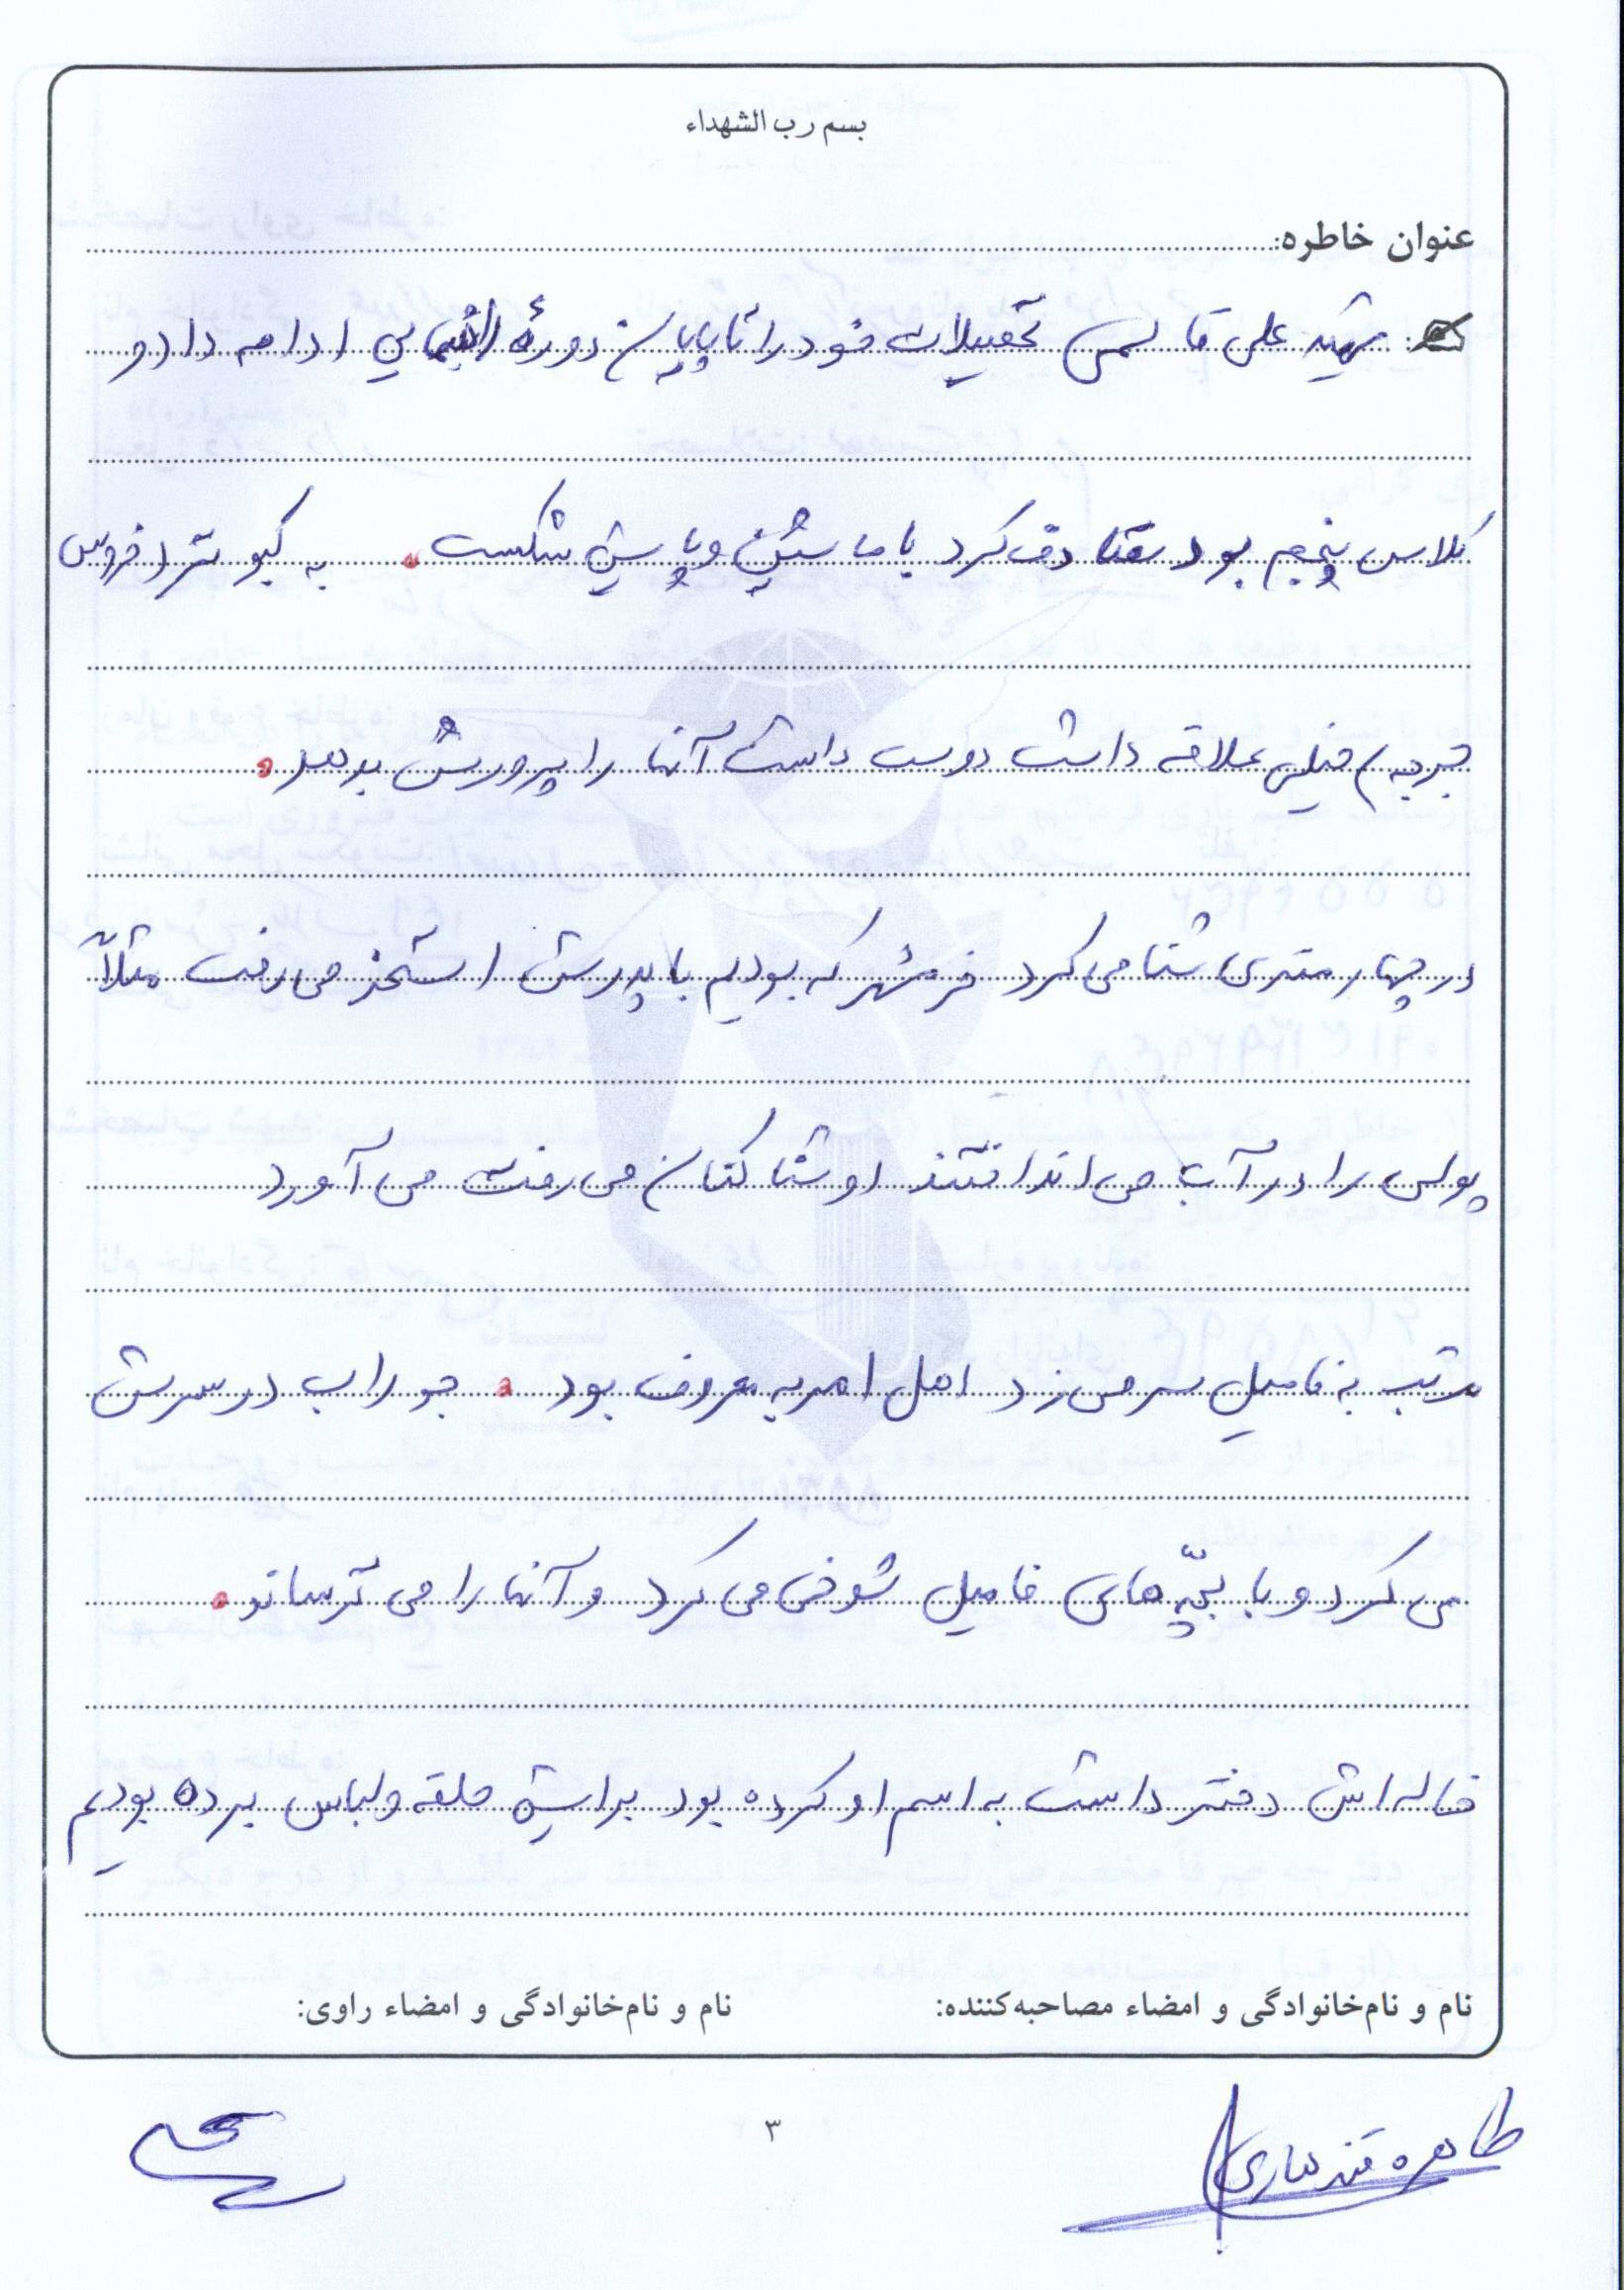 بسم رب الشهداء
عنوان خاطره:
شهید علی قاسمی تحصیلات خود را تا پایان دورهٔ راهنمایی ادامه داد و
کلاس پنجم بود تصادف کرد با ماشین و پایش شکست . به کبوتر و خروس
جوجه خیلی علاقه داشت دوست داشت آنها را پرورش بدهد .
در چهار متری شنا می کرد خرمشهر که بودیم با پدرش استخر می رفت مثلاً
پولی را در آب می انداختند او شنا کنان می رفت می آورد
مرتب به فامیل سر می زد اهل امر به معروف بود . جوراب در سرش
می کرد و با بچّه های فامیل شوخی می کرد و آنها را می ترساند .
خاله اش دختر داشت به اسم او کرده بود برایش حلقه و لباس برده بودیم
نام و نام‌خانوادگی و امضاء مصاحبه‌کننده: نام و نام‌خانوادگی و امضاء راوی:
طاهره قندهاری
۳